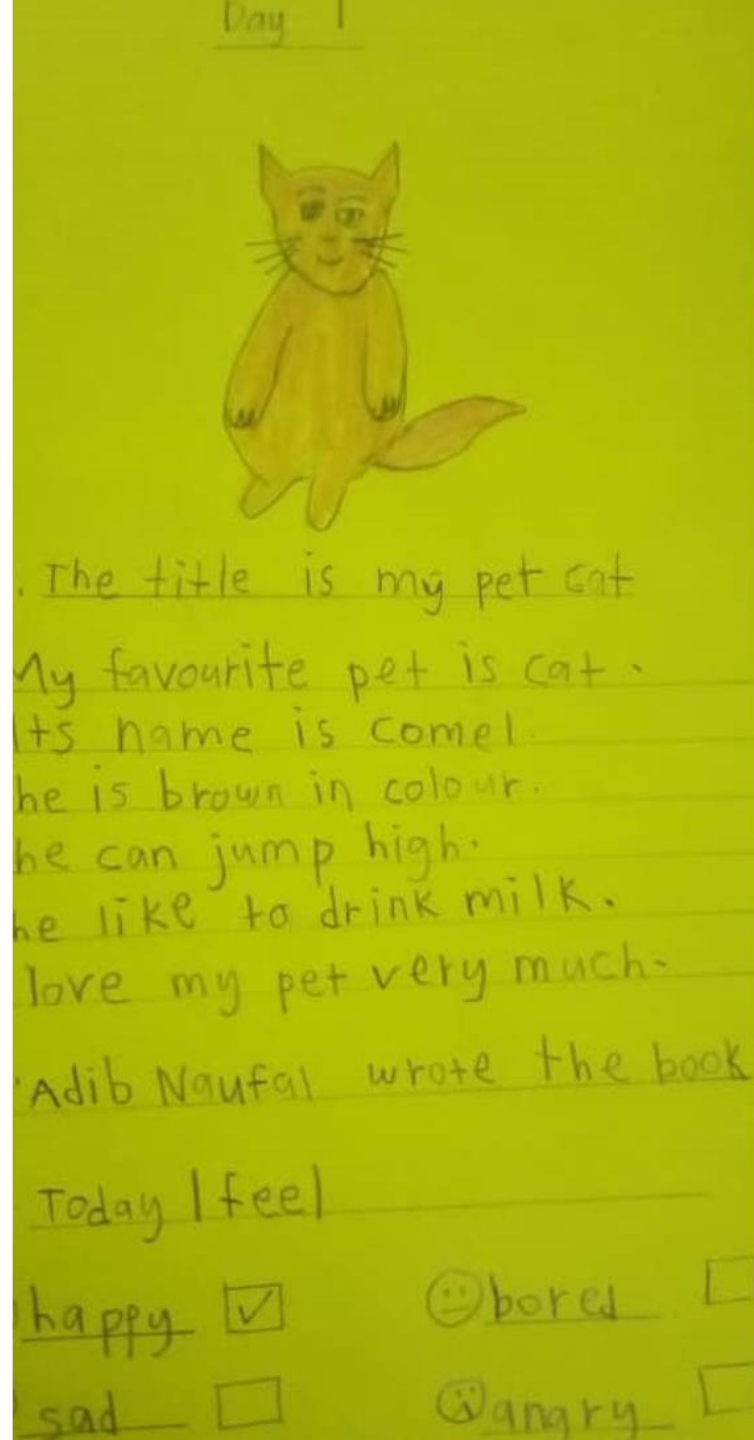 Day 1
. The title is my pet cat
My favourite pet is cat.
Its name is comel.
he is brown in colour.
he can jump high.
he like to drink milk.
love my pet very much.
Adib Naufal wrote the book
Today I feel
happy bored
sad angry